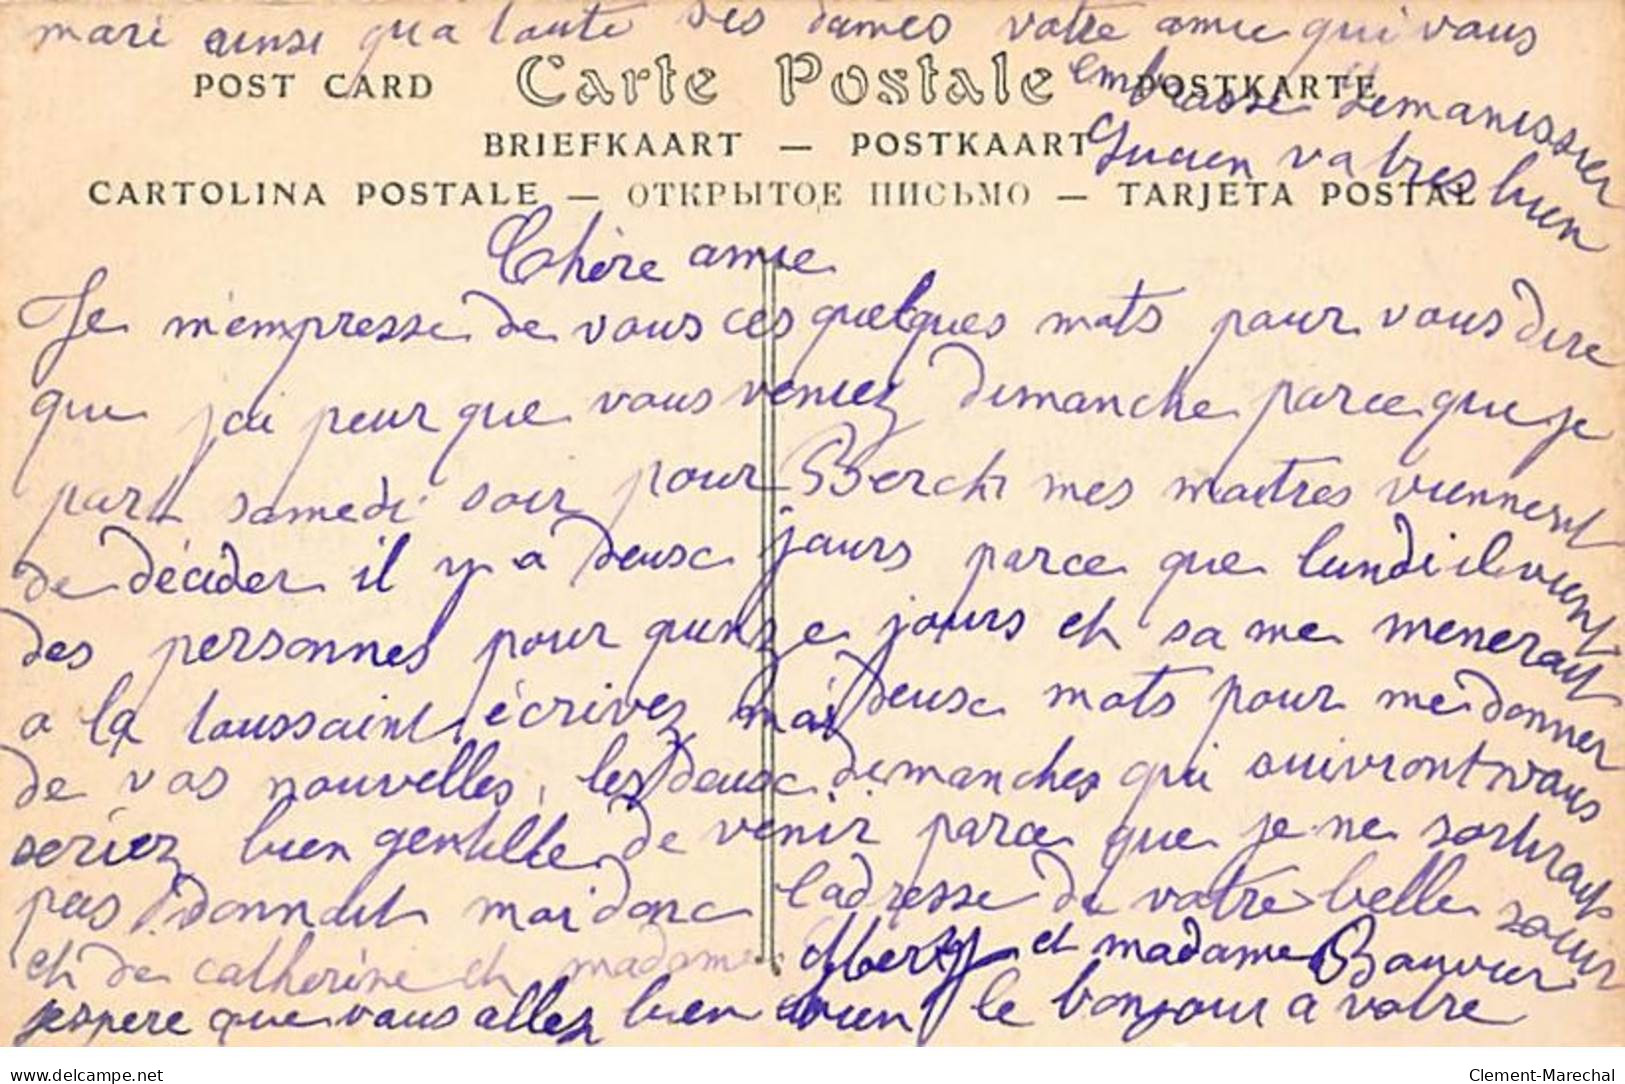 mari ainsi qua toute ses dames votre amie qui vous
embrasse
POST CARD Carte Postale POSTKARTE
BRIEFKAART — POSTKAART
bien
CARTOLINA POSTALE — ОТКРЫТОЕ ПИСЬМО — TARJETA POSTAL
Chère amie
Je m'empresse de vous ces quelques mots pour vous dire
que j'ai peur que vous veniez dimanche parce que je
part samedi soir pour Berck mes maitres viennent
de décider il y a deux jours parce que lundi il vient
des personnes pour quinze jours et sa me menerait
a la toussaint écrivez moi deux mots pour me donner
de vos nouvelles, les deux dimanches qui suivront vous
seriez bien gentille de venir parce que je ne sortirait
pas donnait moi donc l'adresse de votre belle soeur
et de catherine et madame et madame
j'espere que vous allez bien le bonjour a votre
Clement-Marechal
www.delcampe.net